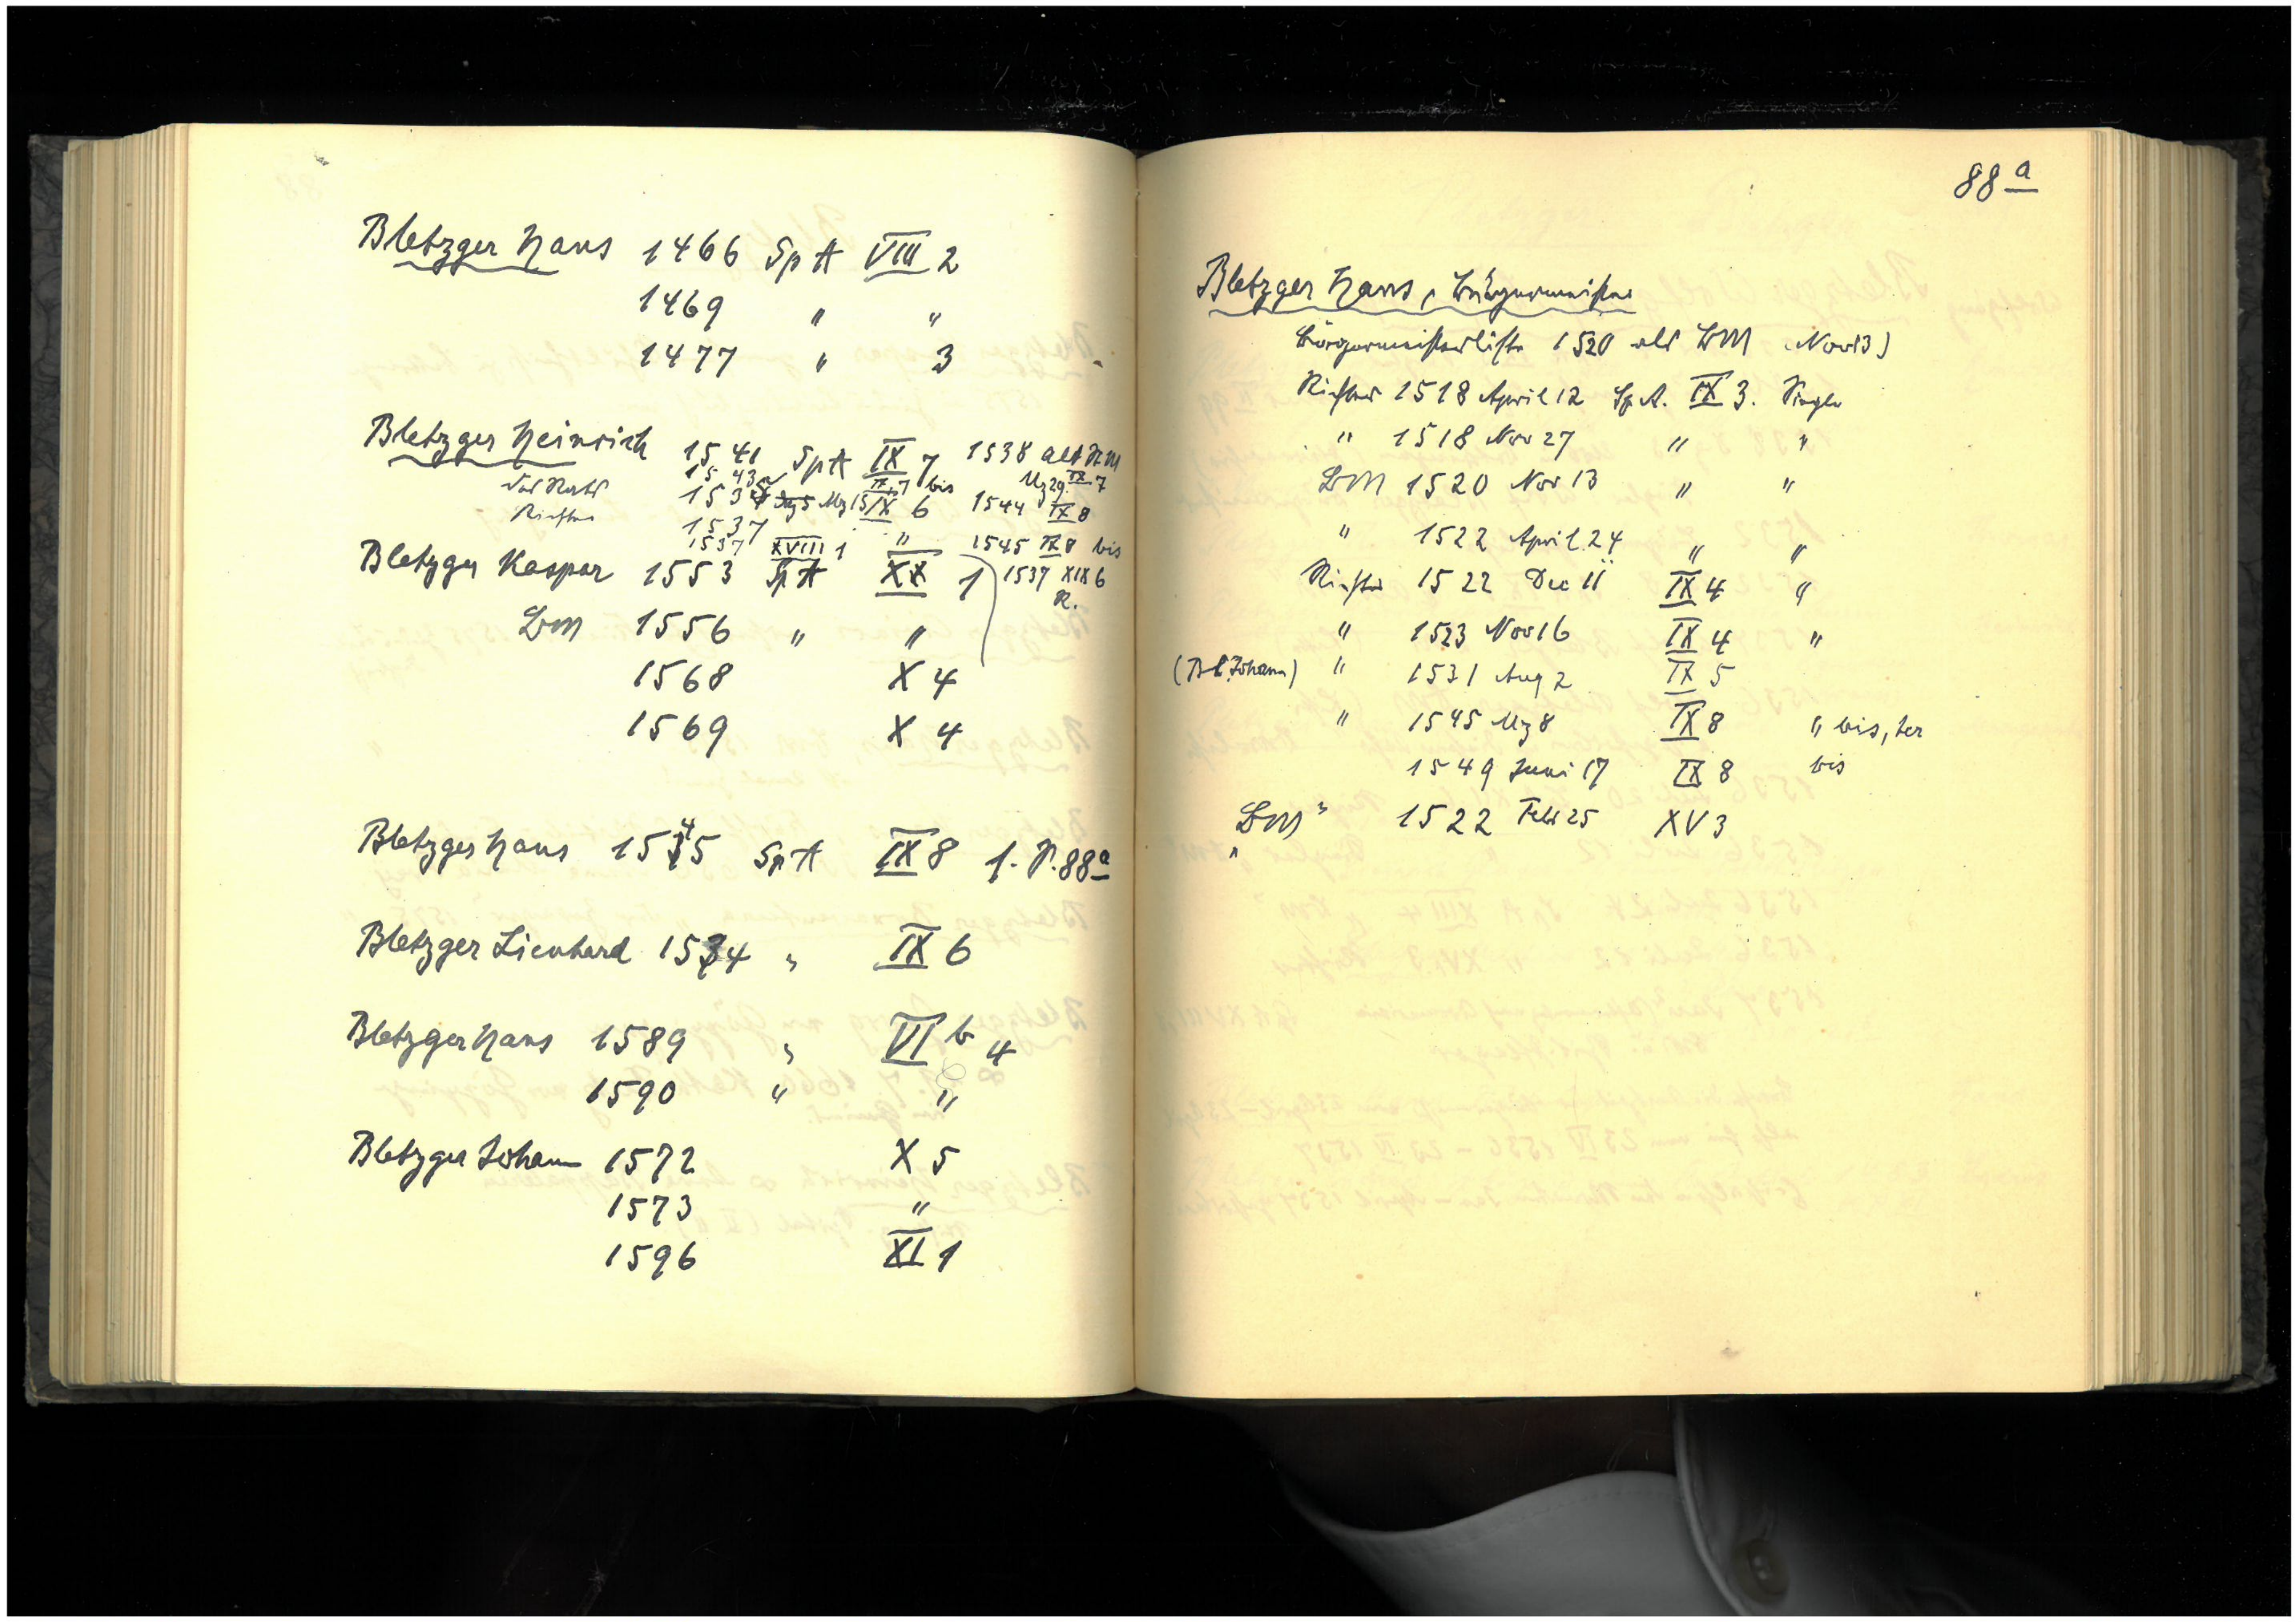 Bletzger Hans 1466 Sp A VIII 2
1469 " "
1477 " 3
Bletzger Heinrich 1541 Sp A IX 7 1538 alt BM
1543 IX 7 bis Mz 29 IX 7
des Rats 1534 Mz 15 IX 6 1544 IX 8
Richter 1537 "
1537 XVIII 1 1545 IX 8 bis
Bletzger Kaspar 1553 Sp A XX 1 1537 XIX 6
R.
BM 1556 " "
1568 X 4
1569 X 4
Bletzger Hans 1545 Sp A IX 8 f. S. 88a
Bletzger Lienhard 1534 " IX 6
Bletzger Hans 1589 " VI b 4
1590 " "
Bletzger Johann 1572 X 5
1573 "
1596 XI 1
88 a
Bletzger Hans, Bürgermeister
Bürgermeisterliste 1520 als BM (Nov 13)
Richter 1518 April 12 Sp A. IX 3. Siegler
" 1518 Nov 27 " "
BM 1520 Nov 13 " "
" 1522 April 24 " "
Richter 1522 Dec 11 IX 4 "
" 1523 Nov 16 IX 4 "
(Bl. Johann) " 1531 Aug 2 IX 5
" 1545 Mz 8 IX 8 " bis, ter
1549 Juni 17 IX 8 bis
BM " 1522 Feb 25 XV 3
"